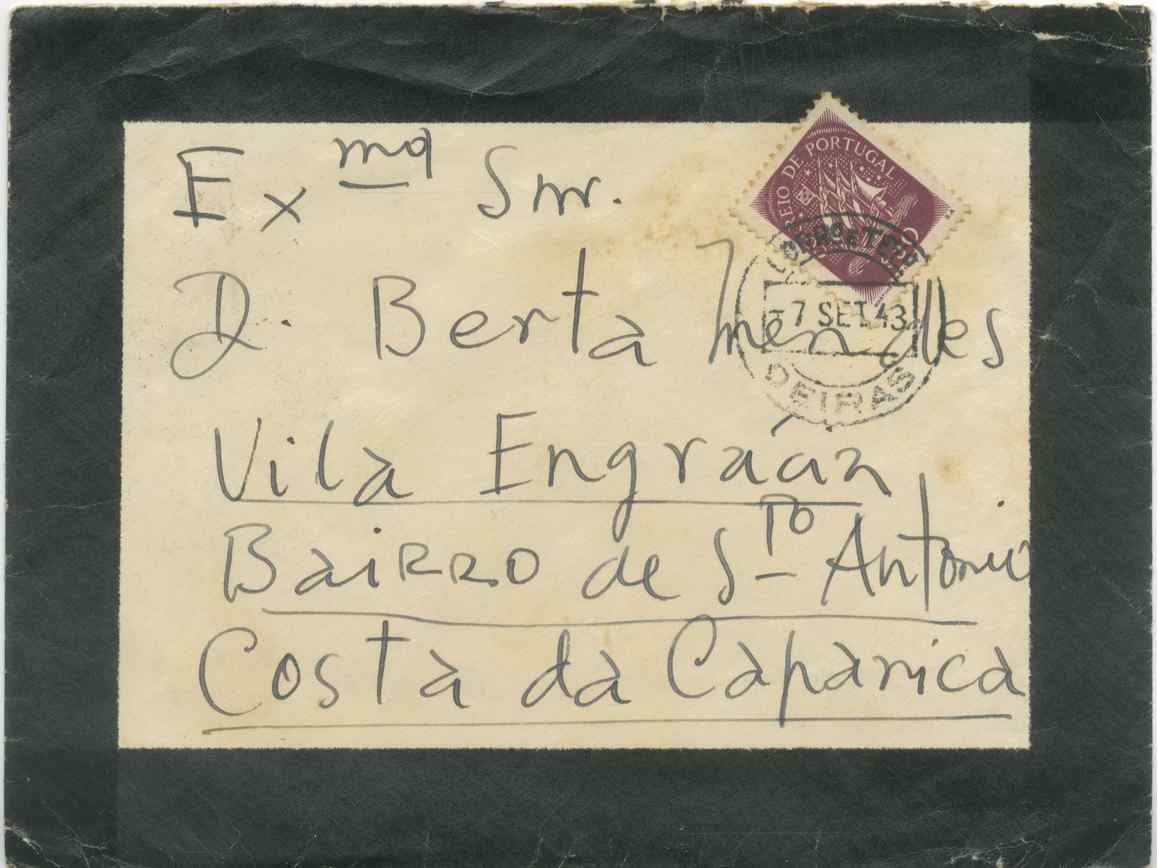 Exma Snr.
D. Berta Mendes
Vila Engrácia
Bairro de Sto Antonio
Costa da Caparica
CORREIO DE PORTUGAL
-7 SET. 43
OEIRAS